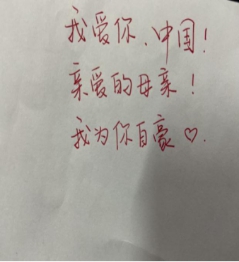 我爱你、中国！
亲爱的母亲！
我为你自豪♡.